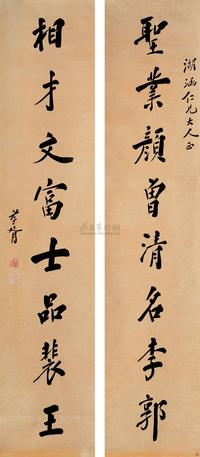 聖業顏曾清名李郭
湖涵仁兄大人正
相才文富士品裴王
孝胥